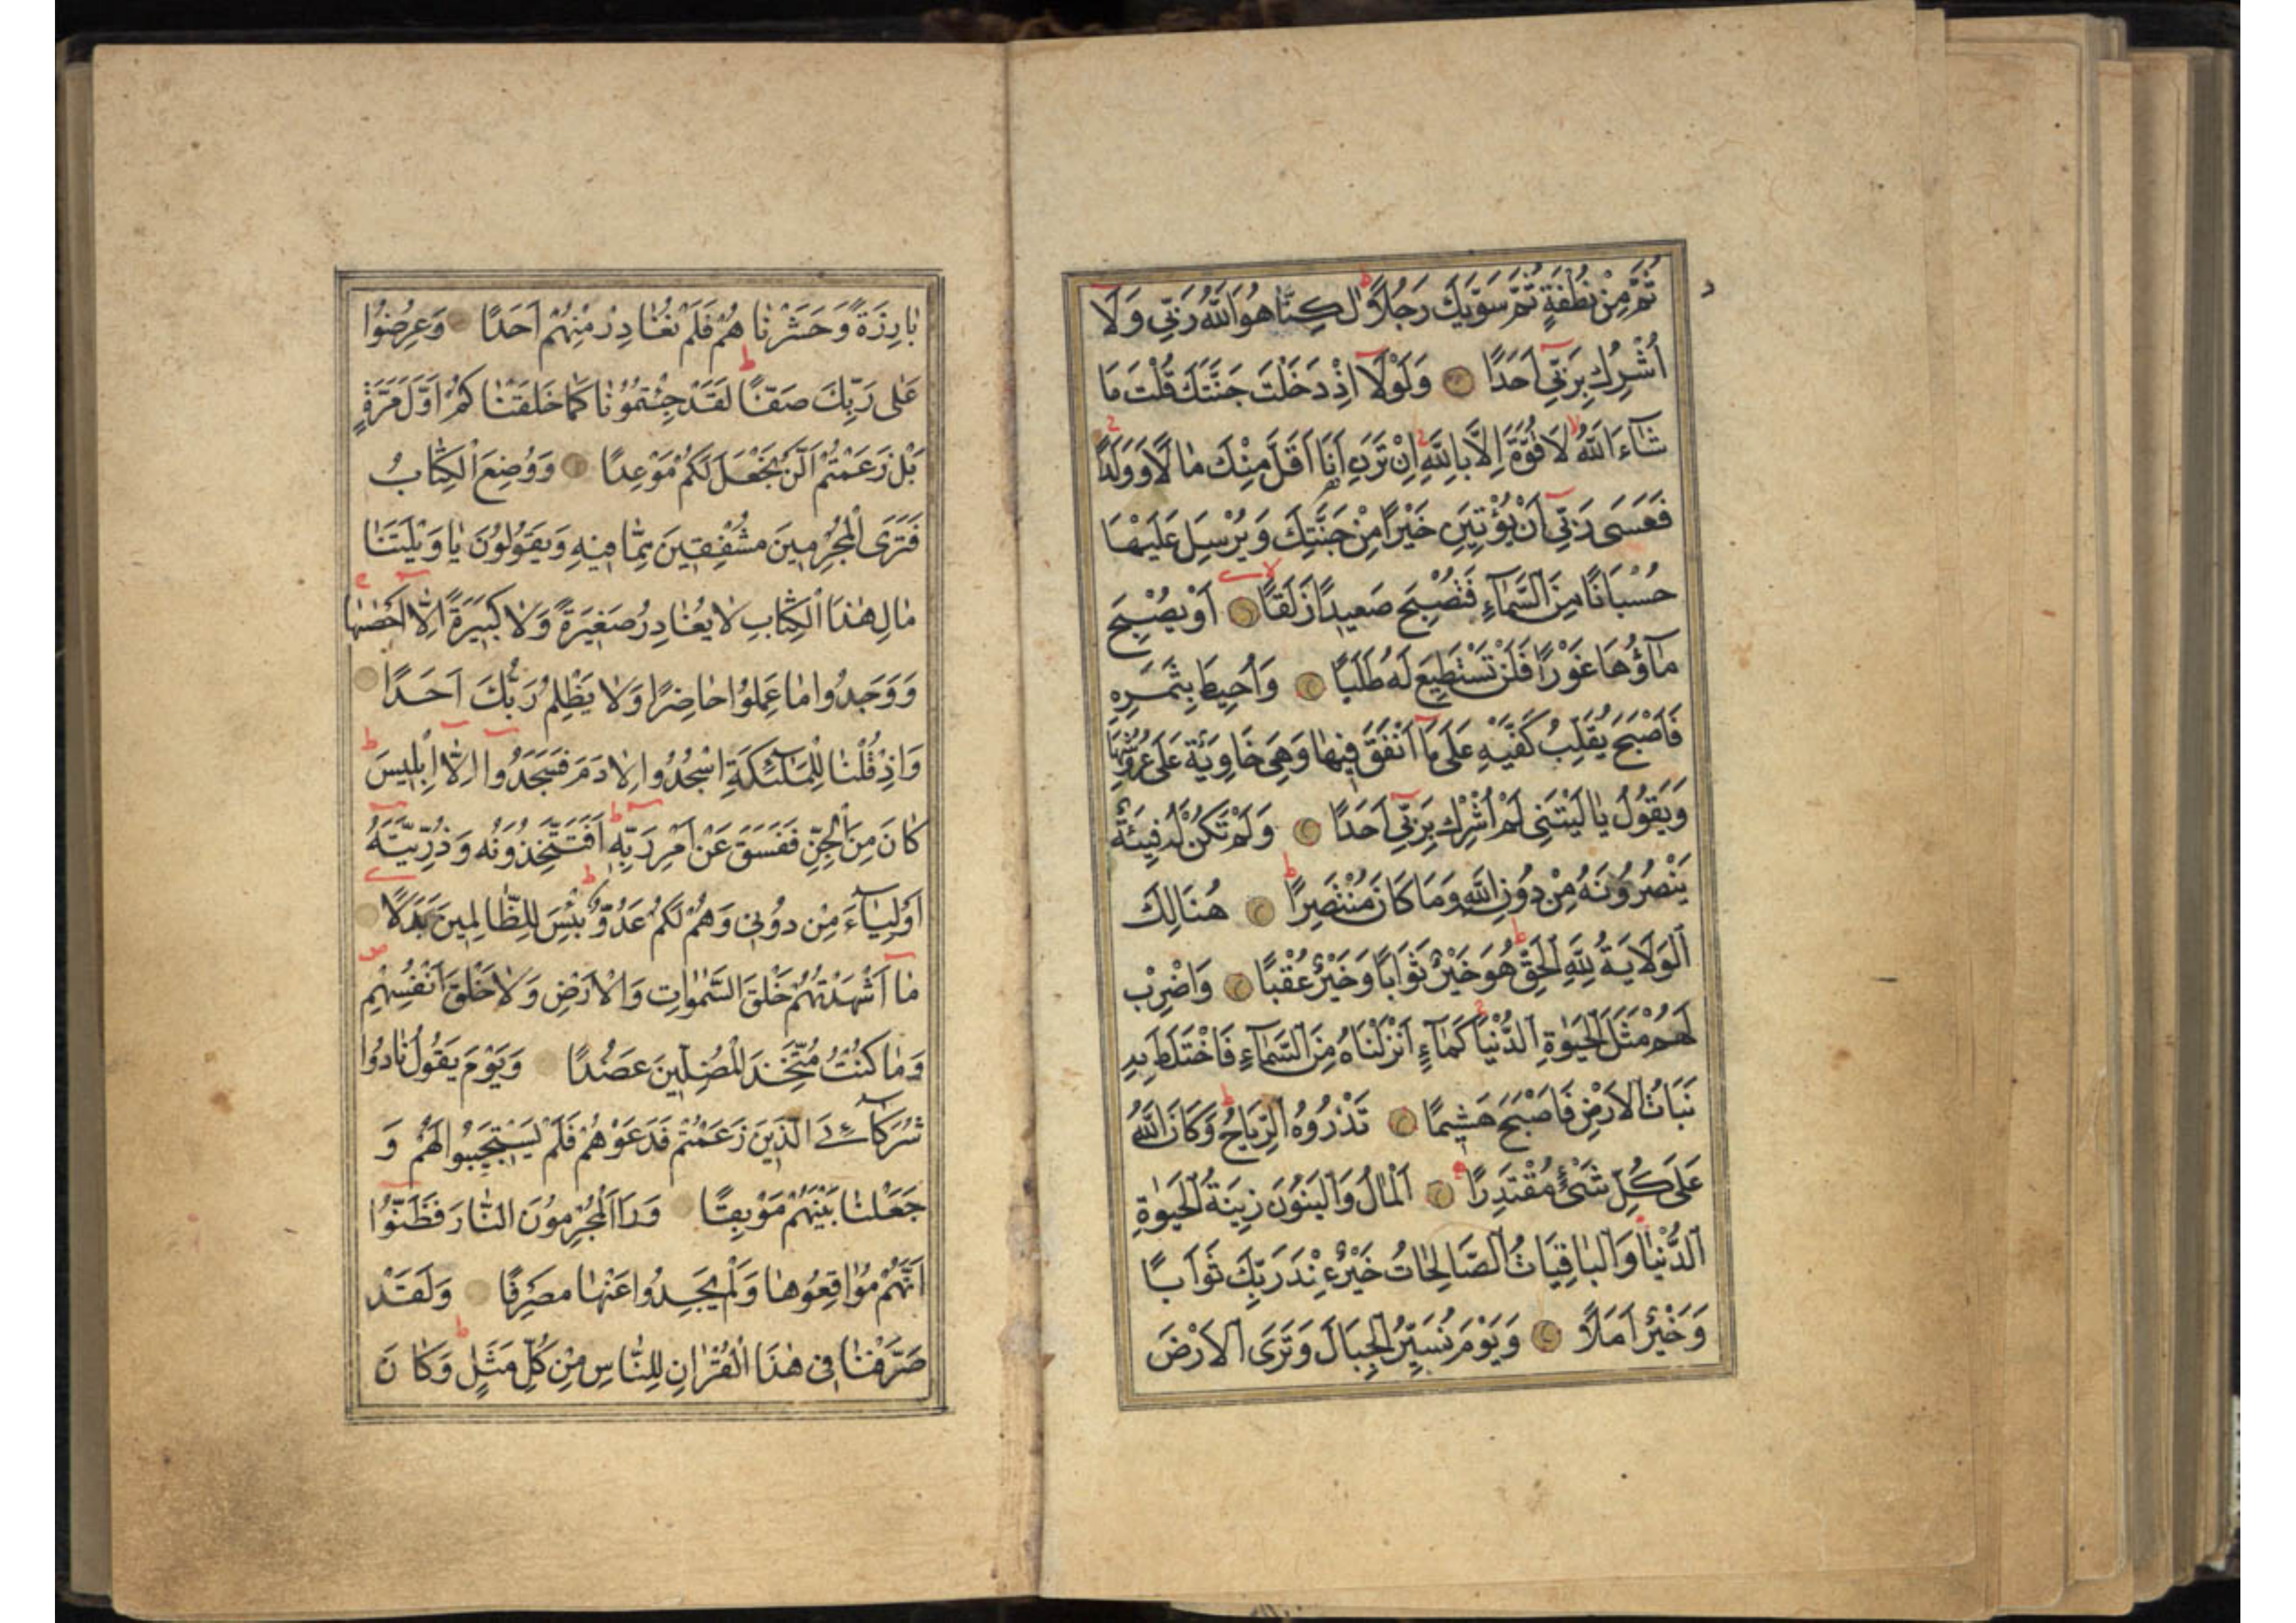 ثُمَّ مِنْ نُطْفَةٍ ثُمَّ سَوّٰيكَ رَجُلًاؕ لٰكِنَّا۬ هُوَ اللّٰهُ رَبّٖي وَلَٓا
اُشْرِكُ بِرَبّٖٓي اَحَدًا وَلَوْلَٓا اِذْ دَخَلْتَ جَنَّتَكَ قُلْتَ مَا
شَٓاءَ اللّٰهُ لَا قُوَّةَ اِلَّا بِاللّٰهِ اِنْ تَرَنِ اَنَا اَقَلَّ مِنْكَ مَالًا وَوَلَدًا
فَعَسَى رَبّٖٓي اَنْ يُؤْتِيَنِ خَيْرًا مِنْ جَنَّتِكَ وَيُرْسِلَ عَلَيْهَا
حُسْبَانًا مِنَ السَّمَٓاءِ فَتُصْبِحَ صَعِيدًا زَلَقًا اَوْ يُصْبِحَ
مَٓاؤُهَا غَوْرًا فَلَنْ تَسْتَطِيعَ لَهُ طَلَبًا وَاُحِيطَ بِثَمَرِهِ
فَاَصْبَحَ يُقَلِّبُ كَفَّيْهِ عَلَى مَٓا اَنْفَقَ فِيهَا وَهِيَ خَاوِيَةٌ عَلَى عُرُوشِهَا
وَيَقُولُ يَا لَيْتَنِي لَمْ اُشْرِكْ بِرَبّٖٓي اَحَدًا وَلَمْ تَكُنْ لَهُ فِئَةٌ
يَنْصُرُونَهُ مِنْ دُونِ اللّٰهِ وَمَا كَانَ مُنْتَصِرًاؕ هُنَالِكَ
الْوَلَايَةُ لِلّٰهِ الْحَقِّؕ هُوَ خَيْرٌ ثَوَابًا وَخَيْرٌ عُقْبًا وَاضْرِبْ
لَهُمْ مَثَلَ الْحَيٰوةِ الدُّنْيَا كَمَٓاءٍ اَنْزَلْنَاهُ مِنَ السَّمَٓاءِ فَاخْتَلَطَ بِهِ
نَبَاتُ الْاَرْضِ فَاَصْبَحَ هَشِيمًا تَذْرُوهُ الرِّيَاحُؕ وَكَانَ اللّٰهُ
عَلَى كُلِّ شَيْءٍ مُقْتَدِرًا اَلْمَالُ وَالْبَنُونَ زِينَةُ الْحَيٰوةِ
الدُّنْيَا وَالْبَاقِيَاتُ الصَّالِحَاتُ خَيْرٌ عِنْدَ رَبِّكَ ثَوَابًا
وَخَيْرٌ اَمَلًا وَيَوْمَ نُسَيِّرُ الْجِبَالَ وَتَرَى الْاَرْضَ
بَارِزَةً وَحَشَرْنَا هُمْ فَلَمْ نُغَادِرْ مِنْهُمْ اَحَدًا وَعُرِضُوا
عَلٰى رَبِّكَ صَفًّاؕ لَقَدْ جِئْتُمُونَا كَمَا خَلَقْنَا كُمْ اَوَّلَ مَرَّةٍ
بَلْ زَعَمْتُمْ اَلَّنْ نَجْعَلَ لَكُمْ مَوْعِدًا وَوُضِعَ الْكِتَابُ
فَتَرَى الْمُجْرِمِينَ مُشْفِقِينَ مِمَّا فِيهِ وَيَقُولُونَ يَا وَيْلَتَنَا
مَالِ هٰذَا الْكِتَابِ لَا يُغَادِرُ صَغِيرَةً وَلَا كَبِيرَةً اِلَّٓا اَحْصٰيهَا
وَوَجَدُوا مَا عَمِلُوا حَاضِرًا وَلَا يَظْلِمُ رَبُّكَ اَحَدًا
وَاِذْ قُلْنَا لِلْمَلٰٓئِكَةِ اسْجُدُوا لِاٰدَمَ فَسَجَدُٓوا اِلَّٓا اِبْلِيسَؕ
كَانَ مِنَ الْجِنِّ فَفَسَقَ عَنْ اَمْرِ رَبِّهِؕ اَفَتَتَّخِذُونَهُ وَذُرِّيَّتَهُٓ
اَوْلِيَٓاءَ مِنْ دُونِي وَهُمْ لَكُمْ عَدُوٌّؕ بِئْسَ لِلظَّالِمِينَ بَدَلًا
مَٓا اَشْهَدْتُهُمْ خَلْقَ السَّمٰوَاتِ وَالْاَرْضِ وَلَا خَلْقَ اَنْفُسِهِمْ
وَمَا كُنْتُ مُتَّخِذَ الْمُضِلِّينَ عَضُدًا وَيَوْمَ يَقُولُ نَادُوا
شُرَكَٓاءِيَ الَّذِينَ زَعَمْتُمْ فَدَعَوْهُمْ فَلَمْ يَسْتَجِيبُوا لَهُمْ وَ
جَعَلْنَا بَيْنَهُمْ مَوْبِقًا وَرَاَ الْمُجْرِمُونَ النَّارَ فَظَنُّٓوا
اَنَّهُمْ مُوَاقِعُوهَا وَلَمْ يَجِدُوا عَنْهَا مَصْرِفًا وَلَقَدْ
صَرَّفْنَا فِي هٰذَا الْقُرْاٰنِ لِلنَّاسِ مِنْ كُلِّ مَثَلٍؕ وَكَانَ